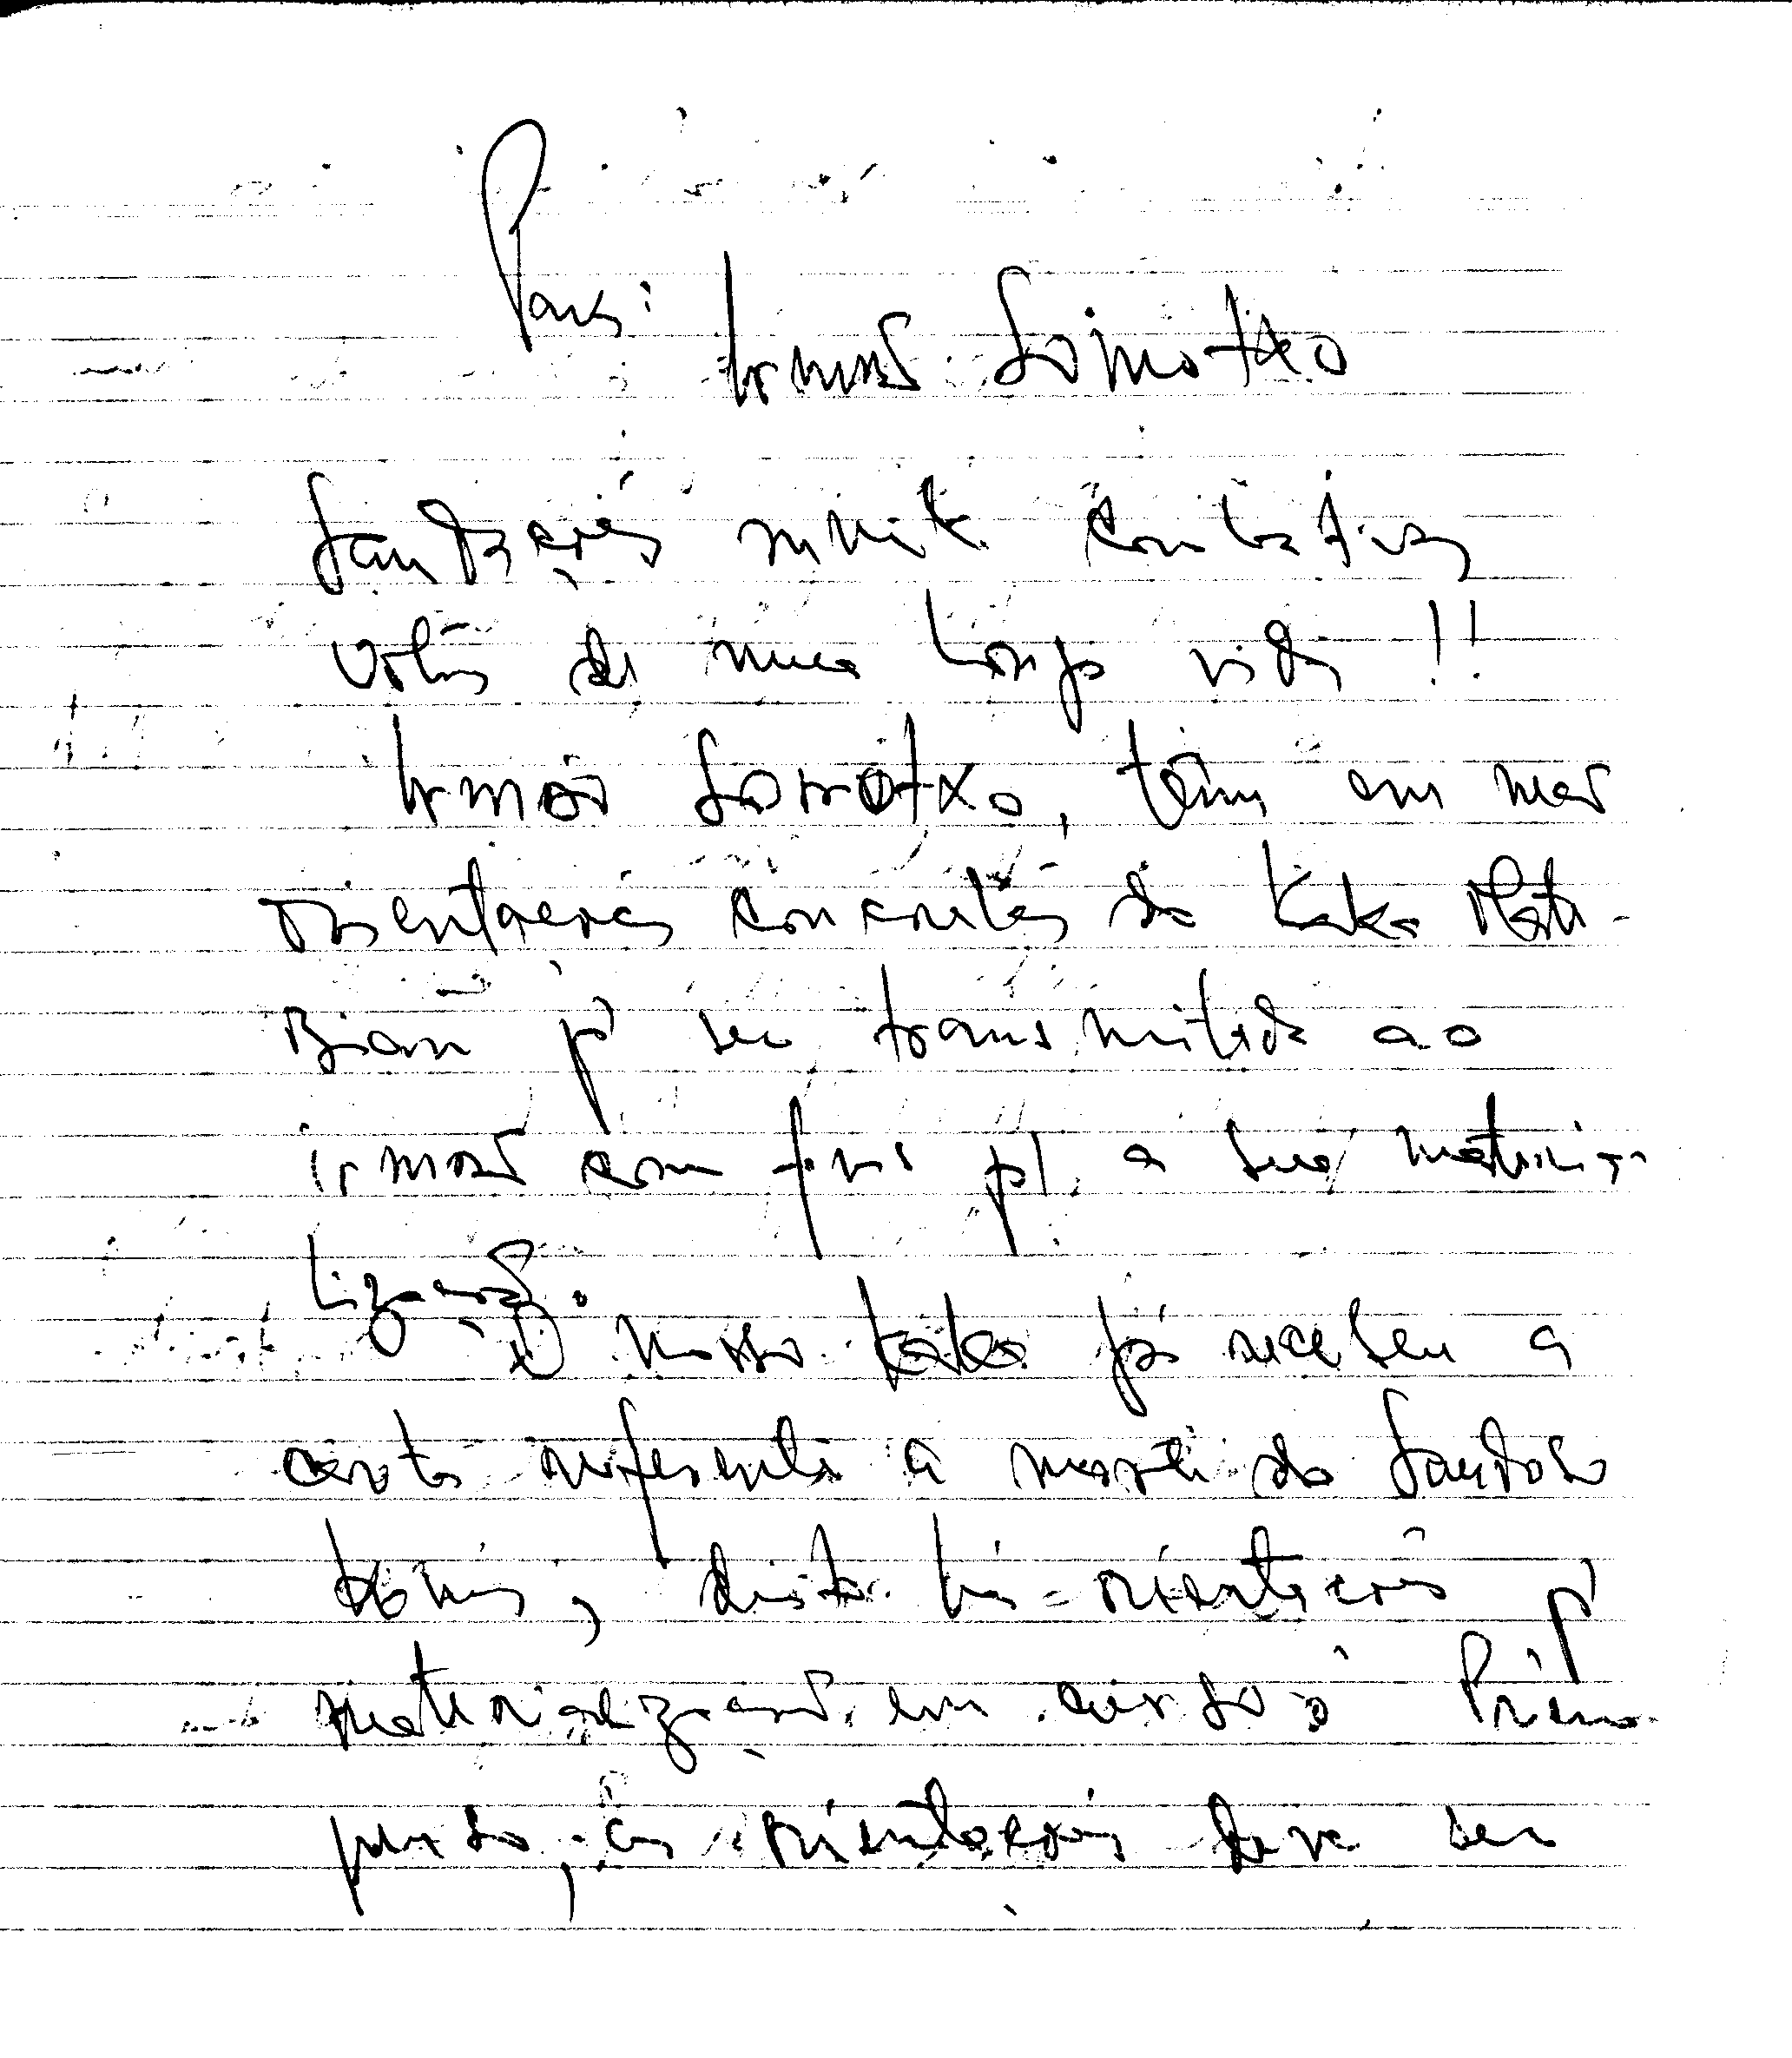 Para:
Irmão Somotxo
Saudações muito combativas
votos de uma longa vida!!
Irmão Somotxo, têm em mão
orientações concretas do Kaka Mata-
Bian p' ser transmitida ao
irmão com fins p/. a sua materia-
lização.
O nosso kaka já recebeu a
carta referente à morte do Saudoso
Konis, deixa-las orientações p'
materialização em curso. Primo
purso, as orientações deve ser